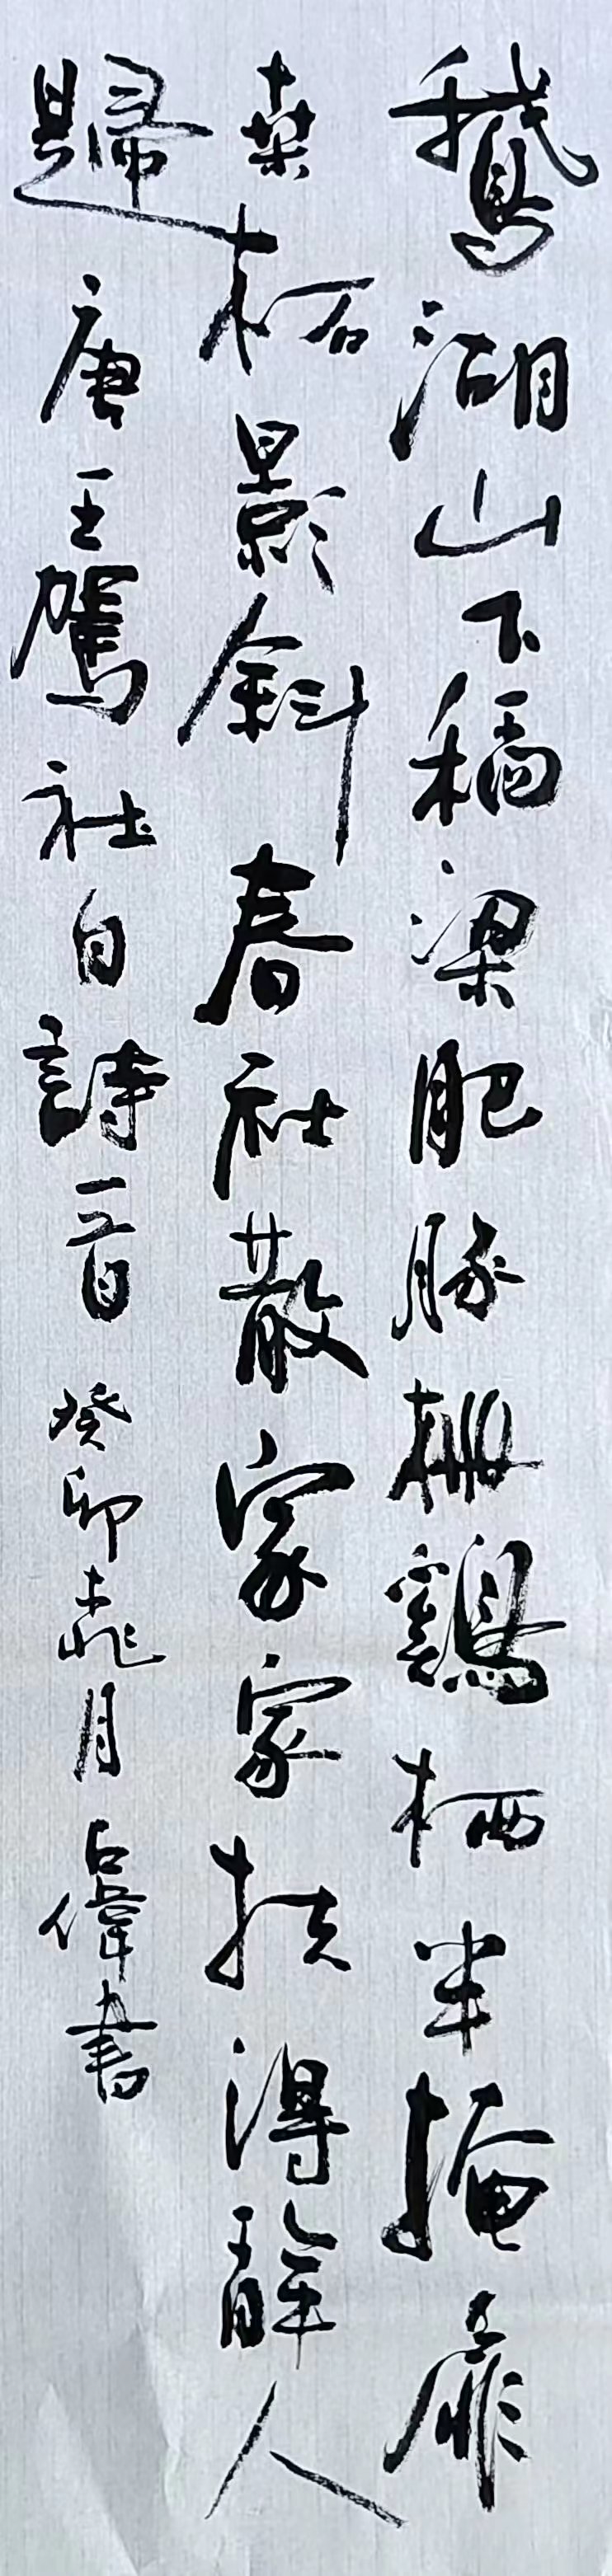 鵞湖山下稻梁肥豚柵鷄栖半掩扉
桒柘影斜春社散家家扶得醉人
歸 唐王駕社日詩一首 癸卯桃月 偉書